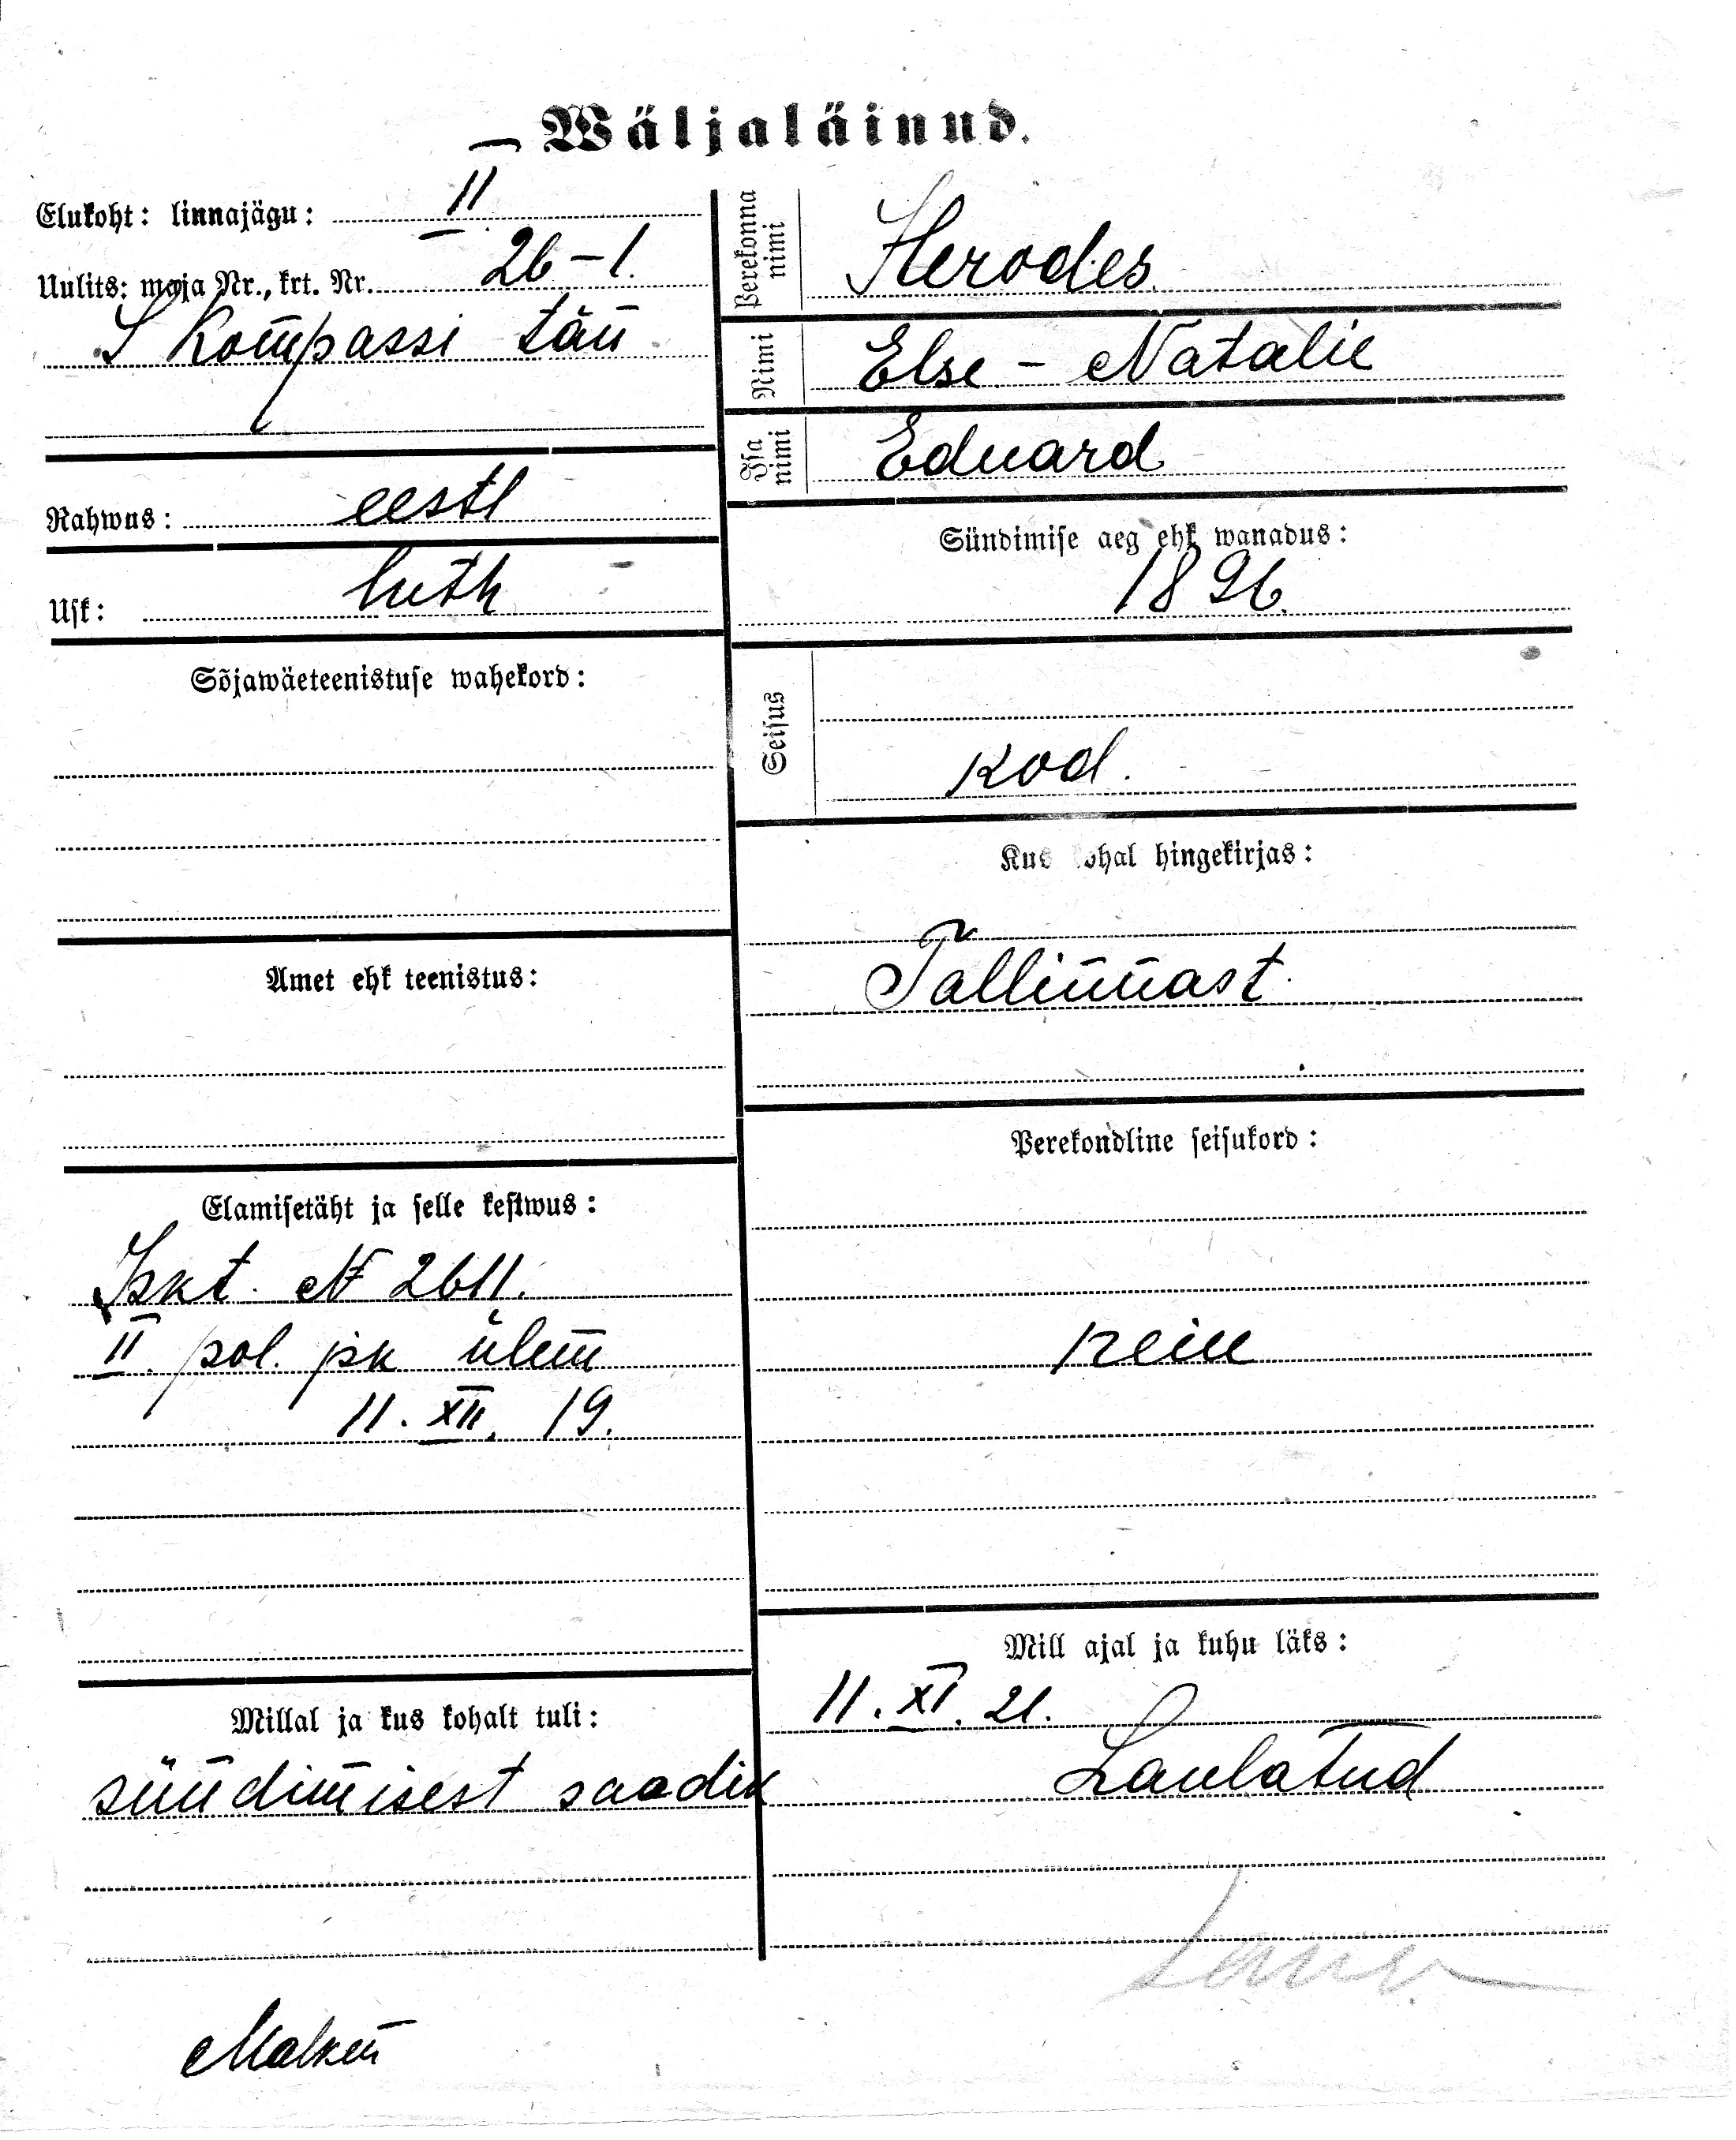 Wäljaläinud.
Elukoht: linnajägu: II
Uulits: maja Nr., krt. Nr. 26-1.
S Kompassi tän
Rahwus: eesti
Usk: luth
Sõjawäeteenistuse wahekord:
Amet ehk teenistus:
Elamisetäht ja selle kestwus:
Iskt. N 2611.
II. pol. jsk ülem
11. XII. 19.
Millal ja kus kohalt tuli:
sündimisest saadik
Perekonna nimi
Herodes
Nimi
Else-Natalie
Isa nimi
Eduard
Sündimise aeg ehk wanadus:
1896.
Seisus
kod.
Kus kohal hingekirjas:
Tallinnast
Perekondline seisukord:
Mill ajal ja kuhu läks:
11. XI. 21.
Laulatud